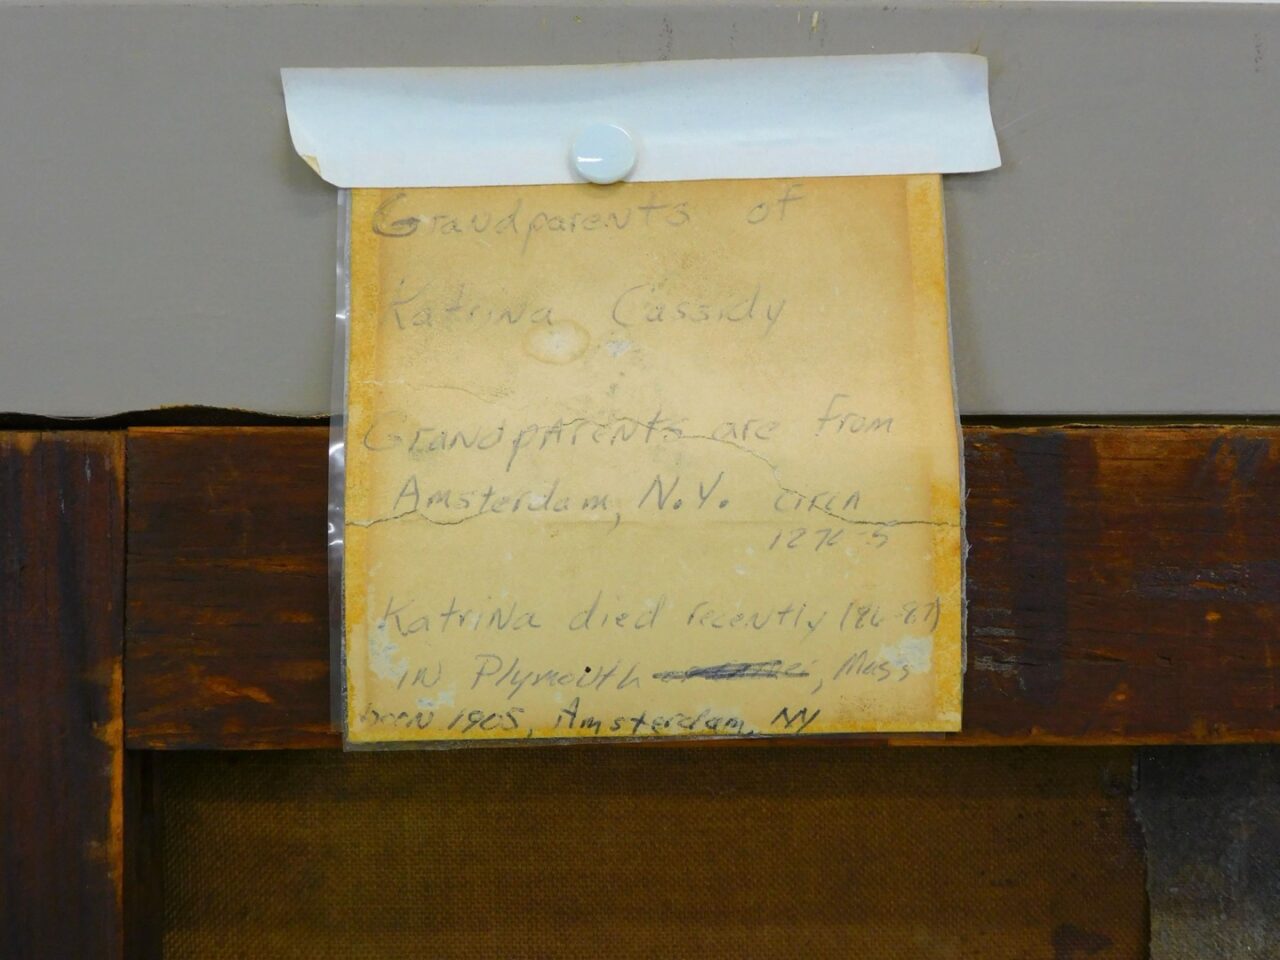 Grandparents of
Katrina Cassidy
Grandparents are from
Amsterdam, N.Y. circa
Katrina died recently (86-87)
in Plymouth, Mass
born 1905, Amsterdam, NY